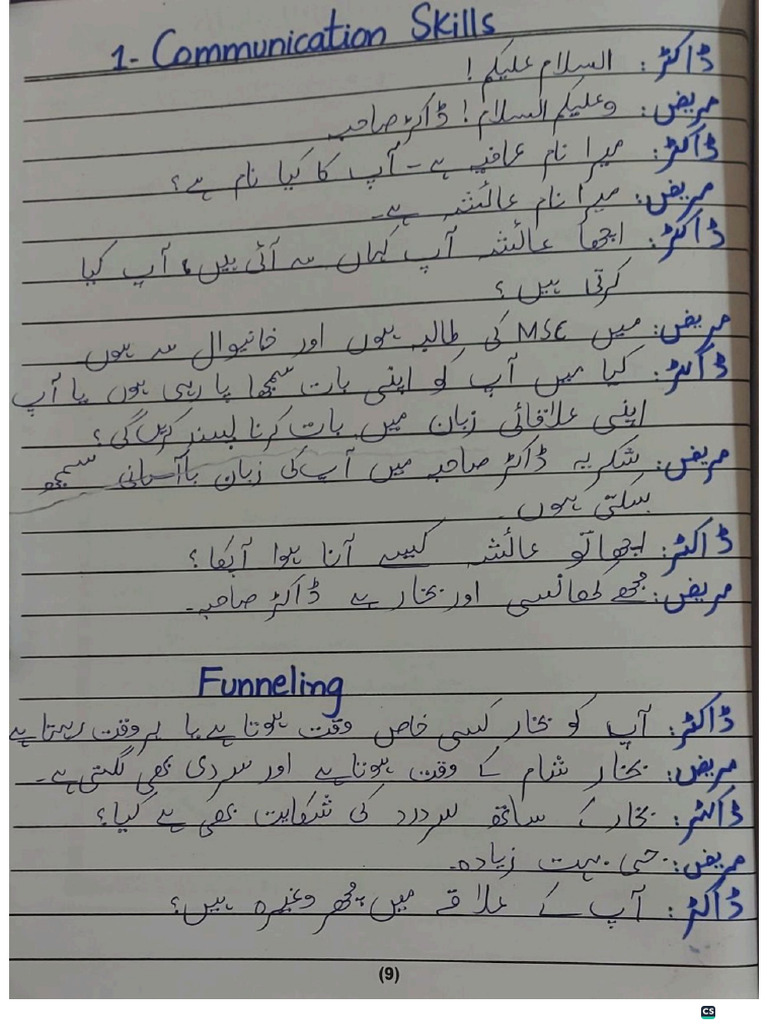 1- Communication Skills
ڈاکٹر: السلام علیکم!
مریض: وعلیکم السلام! ڈاکٹر صاحبہ
ڈاکٹر: میرا نام عافیہ ہے - آپ کا کیا نام ہے؟
مریض: میرا نام عائشہ ہے۔
ڈاکٹر: اچھا عائشہ آپ کہاں سے آئی ہیں، آپ کیا
کرتی ہیں؟
مریض: میں MSC کی طالبہ ہوں اور خانیوال سے ہوں۔
ڈاکٹر: کیا میں آپ کو اپنی بات سمجھا پا رہی ہوں یا آپ
اپنی علاقائی زبان میں بات کرنا پسند کریں گی؟
مریض: شکریہ ڈاکٹر صاحبہ میں آپ کی زبان باآسانی سمجھ
سکتی ہوں۔
ڈاکٹر: اچھا تو عائشہ کیسے آنا ہوا آپکا؟
مریض: مجھے کھانسی اور بخار ہے ڈاکٹر صاحبہ۔
Funneling
ڈاکٹر: آپ کو بخار کسی خاص وقت ہوتا ہے یا ہر وقت رہتا ہے
مریض: بخار شام کے وقت ہوتا ہے اور سردی بھی لگتی ہے۔
ڈاکٹر: بخار کے ساتھ سر درد کی شکایت بھی ہے کیا؟
مریض: جی بہت زیادہ۔
ڈاکٹر: آپ کے علاقے میں مچھر وغیرہ ہیں؟
(9)
CS